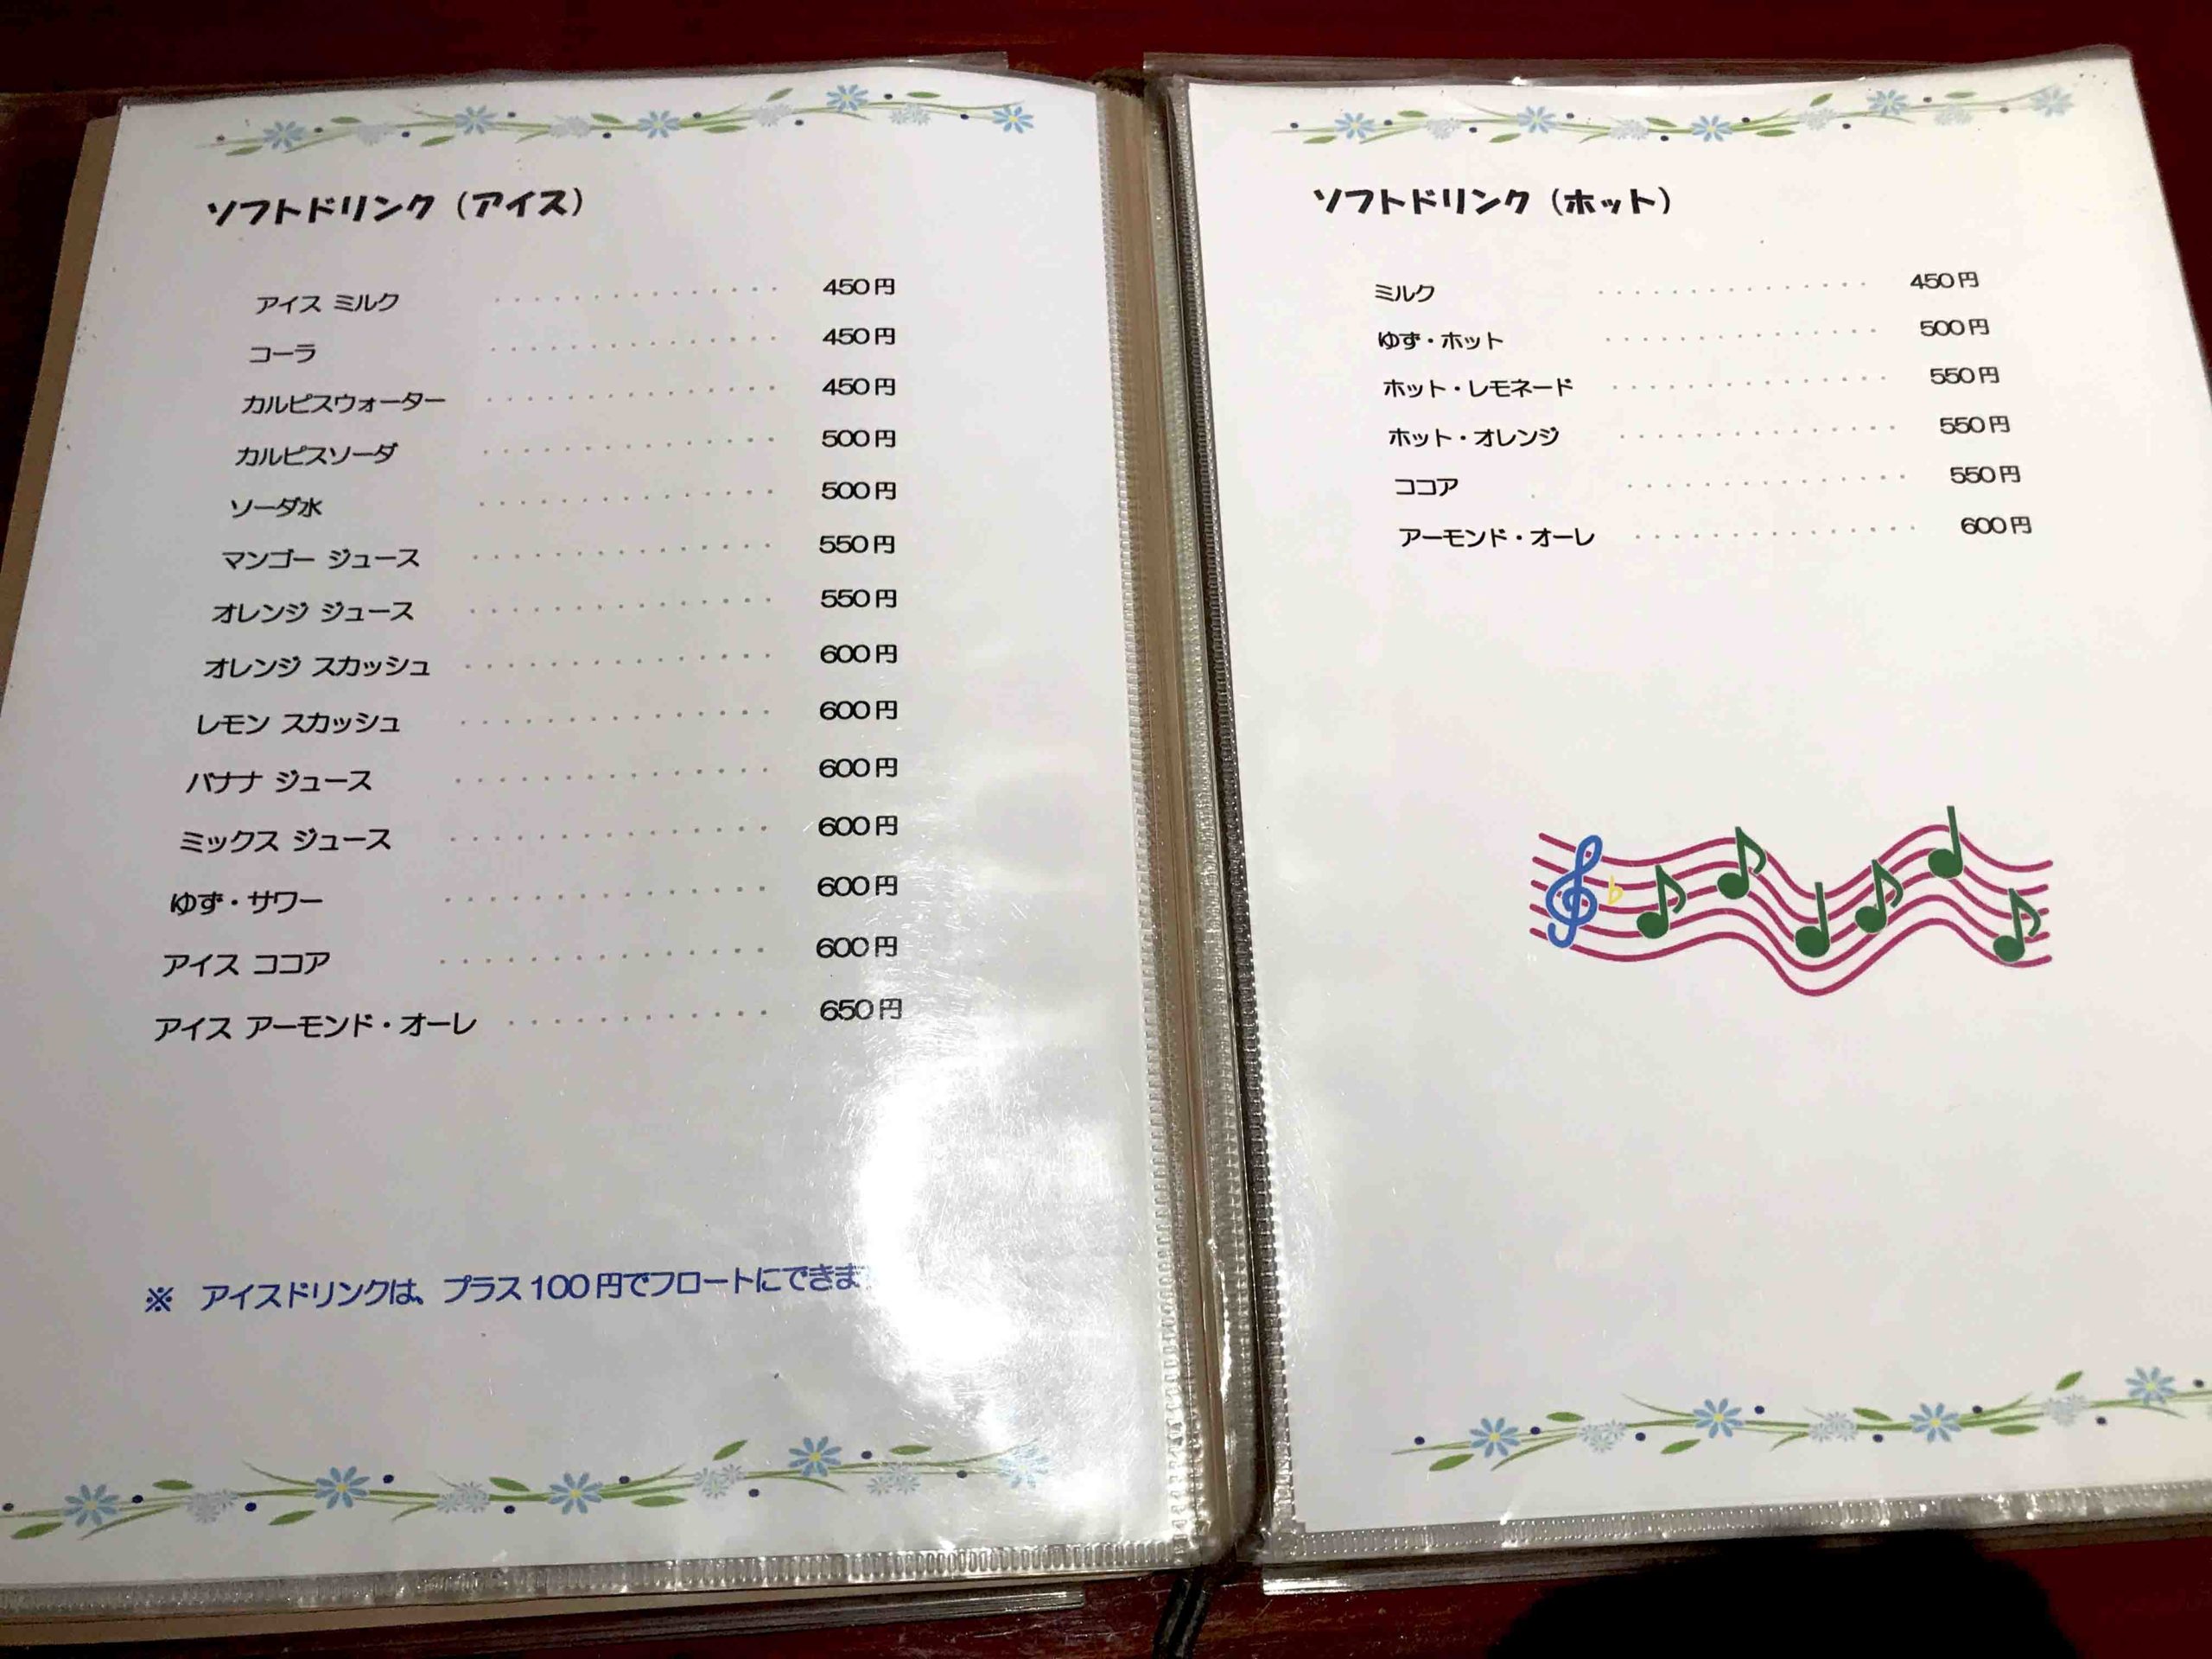 ソフトドリンク（アイス）
アイス ミルク ・・・・・・・・・・・・・・ 450円
コーラ ・・・・・・・・・・・・・・ 450円
カルピスウォーター ・・・・・・・・・・・・・・ 450円
カルピスソーダ ・・・・・・・・・・・・・・ 500円
ソーダ水 ・・・・・・・・・・・・・・ 500円
マンゴー ジュース ・・・・・・・・・・・・・・ 550円
オレンジ ジュース ・・・・・・・・・・・・・・ 550円
オレンジ スカッシュ ・・・・・・・・・・・・・・ 600円
レモン スカッシュ ・・・・・・・・・・・・・・ 600円
バナナ ジュース ・・・・・・・・・・・・・・ 600円
ミックス ジュース ・・・・・・・・・・・・・・ 600円
ゆず・サワー ・・・・・・・・・・・・・・ 600円
アイス ココア ・・・・・・・・・・・・・・ 600円
アイス アーモンド・オーレ ・・・・・・・・・・・・ 650円
※ アイスドリンクは、プラス100円でフロートにできま
ソフトドリンク（ホット）
ミルク ・・・・・・・・・・・・・・ 450円
ゆず・ホット ・・・・・・・・・・・・・・ 500円
ホット・レモネード ・・・・・・・・・・・・・・ 550円
ホット・オレンジ ・・・・・・・・・・・・・・ 550円
ココア ・・・・・・・・・・・・・・ 550円
アーモンド・オーレ ・・・・・・・・・・・・・・ 600円